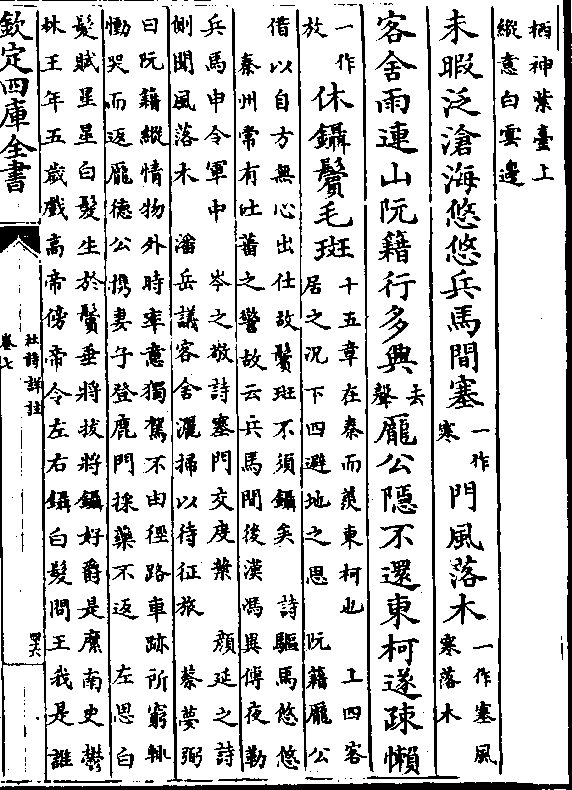 栖神紫臺上
縱意白雲邊
未暇泛滄海悠悠兵馬間塞一作寒門風落木一作塞風寒落木
客舍雨連山阮籍行多興去聲龐公隱不還東柯遂疎懶
一作放休鑷鬢毛斑十五章在秦而羨東柯也 上四客
居之况下四避地之思 阮籍龐公
借以自方無心出仕故鬢斑不須鑷矣 詩驅馬悠悠
秦州常有吐蕃之警故云兵馬間後漢馮異傳夜勒
兵馬申令軍中 岑之敬詩塞門交度葉 顔延之詩
側聞風落木 潘岳議客舍灑掃以待征旅 蔡夢弼
曰阮籍縱情物外時率意獨駕不由徑路車跡所窮輒
慟哭而返龐德公携妻子登鹿門採藥不返 左思白
髮賦星星白髮生於鬢垂將拔將鑷好爵是縻南史鬱
林王年五歲戲高帝傍帝令左右鑷白髮問王我是誰
欽定四庫全書
杜詩詳註
卷七
四六